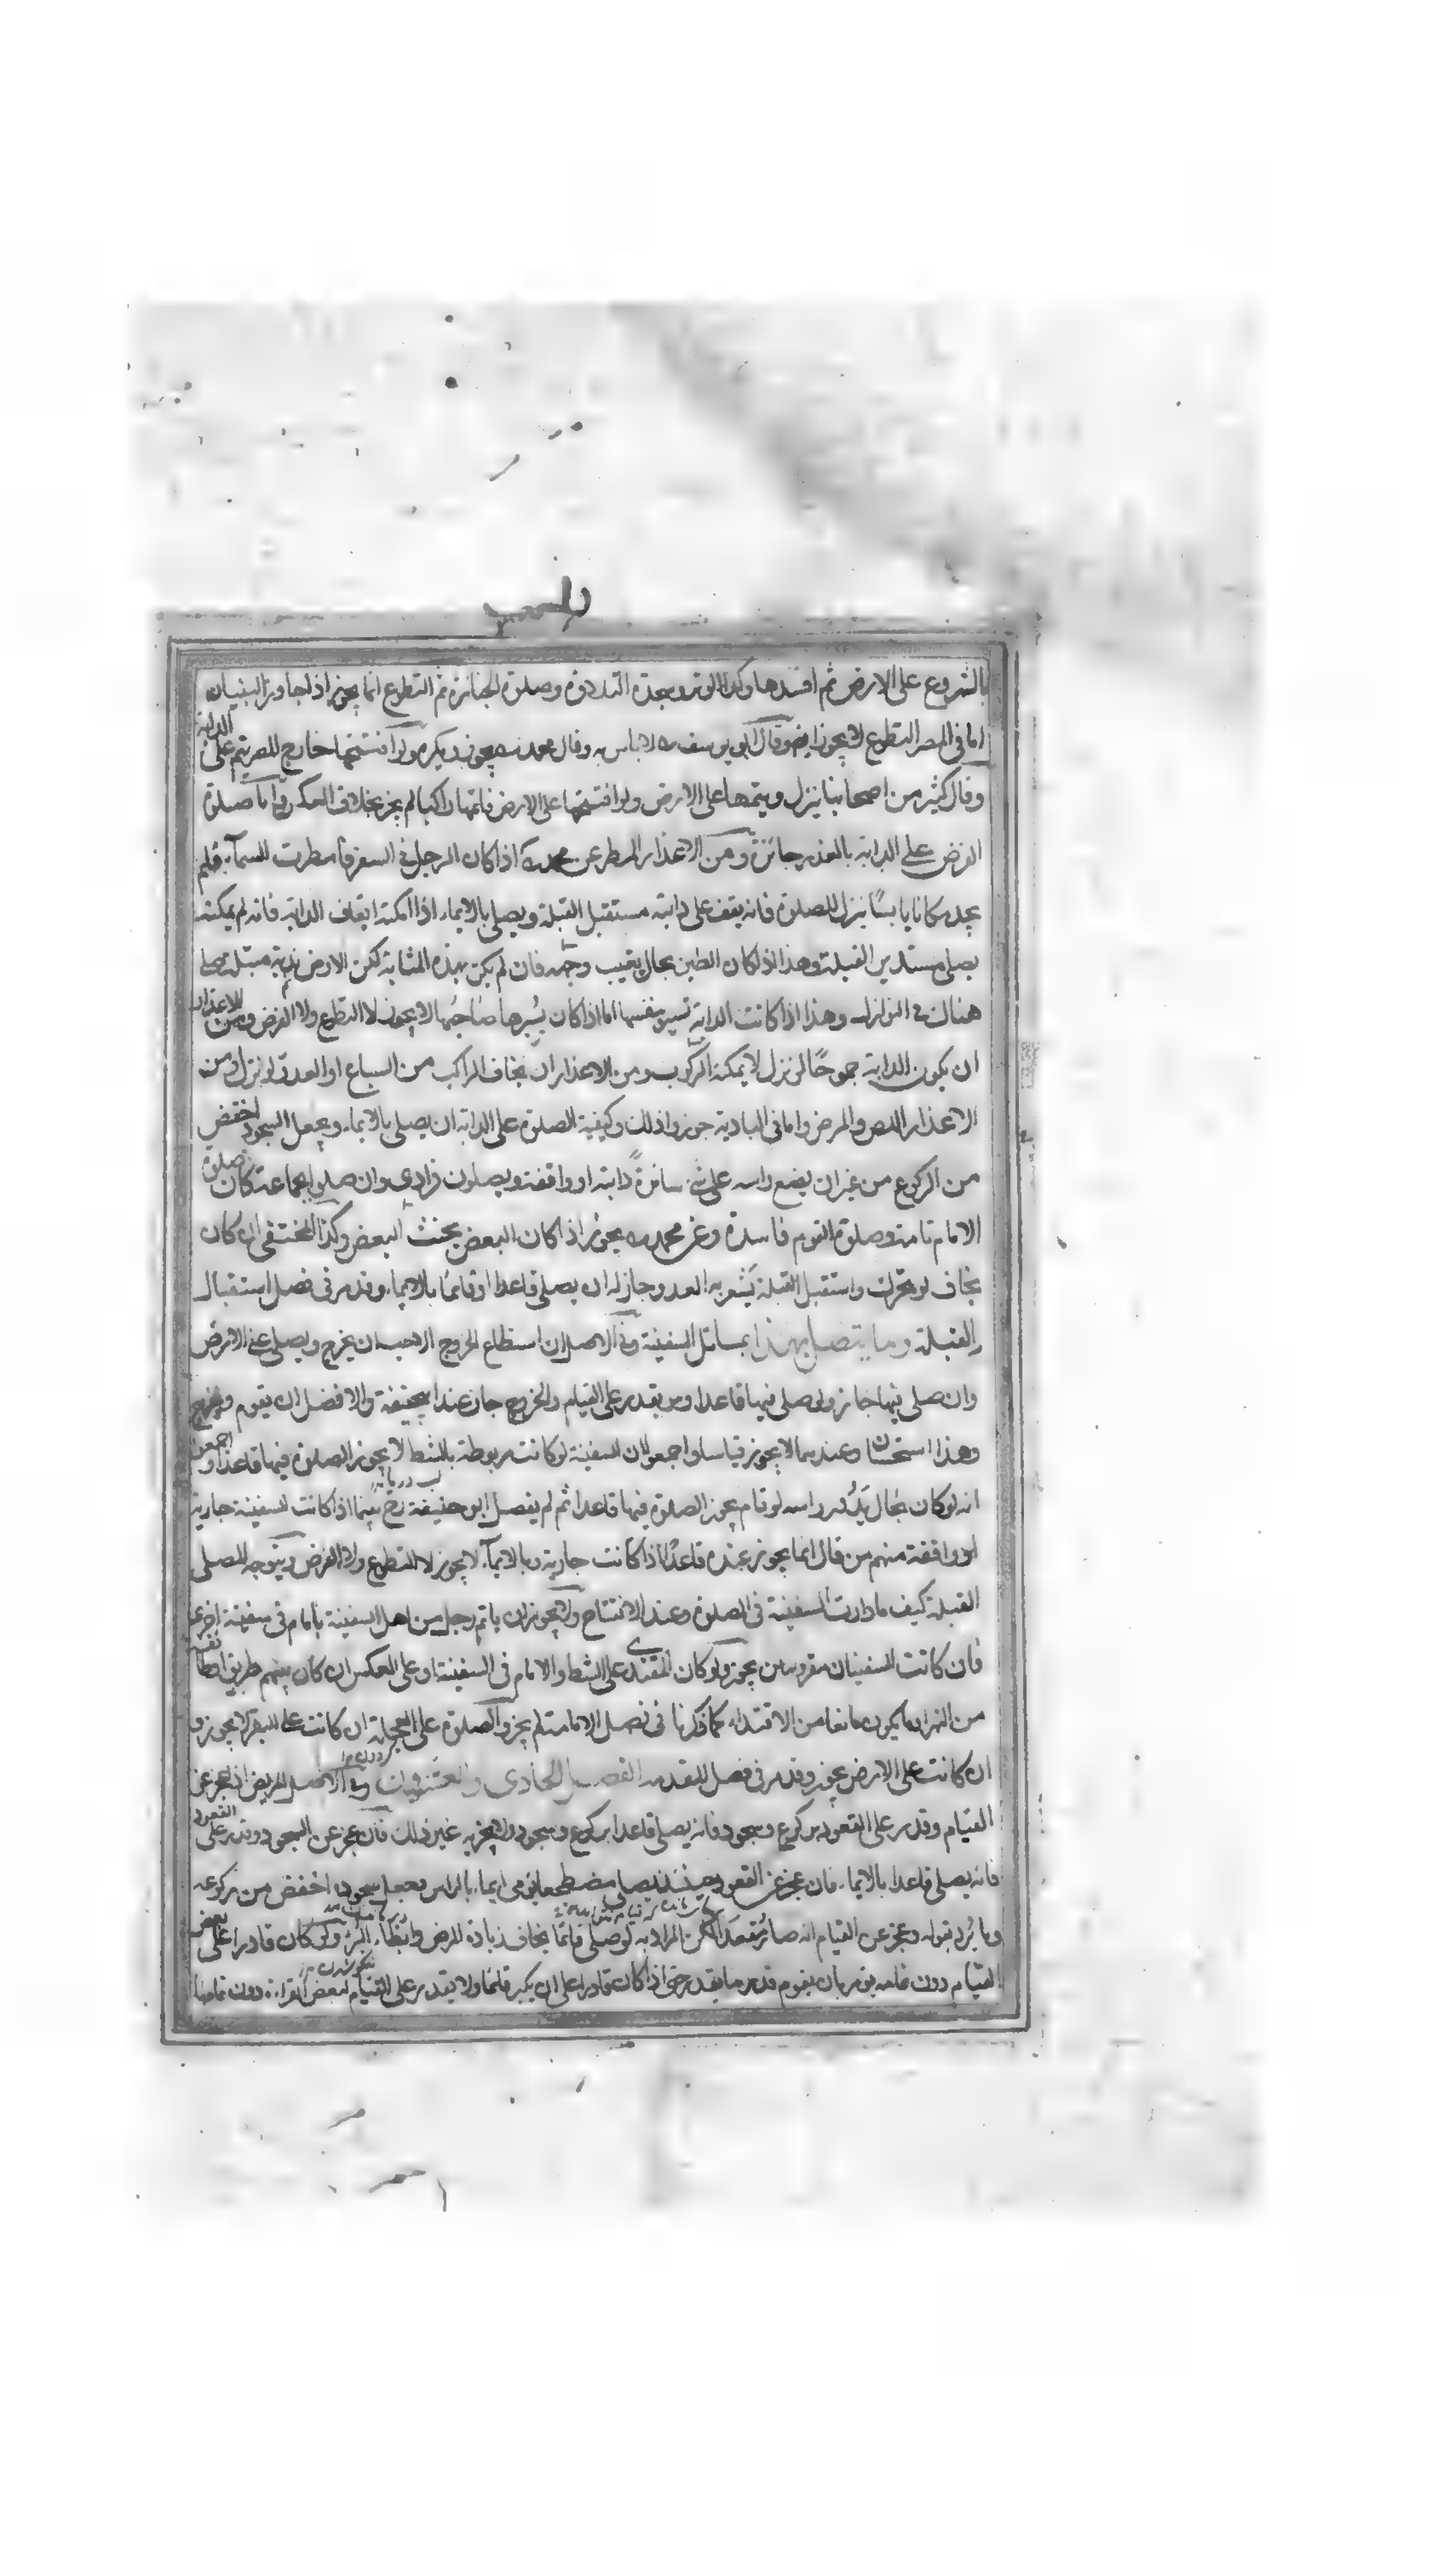 بالشروع على الارض ثم افسدها وكذا الوتر وسجدة التلاوة وصلوة الجنازة ثم التطوع انما يجوز اذا جاوز البنيان
اما في المصر التطوع لا يجوز ايضا وقال ابو يوسف لا باس به وقال محمد يجوز ويكره ولو افتتحها خارج المصر يتم على الدابة
وقال كثير من اصحابنا ينزل ويتمها على الارض ولو افتتحها على الارض فاتمها راكبا لم يجز بخلاف العكس واما صلوة
الفرض على الدابة بالعذر جائزة ومن الاعذار المطر عن محمد اذا كان الرجل في السفر فامطرت السماء فلم
يجد مكانا يابسا ينزل للصلوة فانه يقف على دابته مستقبل القبلة ويصلي بالايماء اذا امكنه ايقاف الدابة فان لم يمكنه
يصلي مستدبر القبلة وهذا اذا كان الطين بحال يغيب وجهه فان لم يكن بهذه المثابة لكن الارض ندية مبتلة صلى
هناك في النوازل وهذا اذا كانت الدابة تسير بنفسها اما اذا كان يسيرها صاحبها لا يجوز لا التطوع ولا الفرض ومن الاعذار
ان يكون الدابة جموحا لو نزل لا يمكنه الركوب ومن الاعذار ان يخاف الراكب من السباع او العدو لو نزل ومن
الاعذار اللص والمرض واما في البادية جوزوا ذلك وكيفية الصلوة على الدابة ان يصلي بالايماء ويجعل السجود اخفض
من الركوع من غير ان يضع راسه على شئ سائرة دابته او واقفة ويصلون فرادى وان صلوا بجماعة كان صلوة
الامام تامة وصلوة القوم فاسدة وعن محمد يجوز اذا كان البعض بجنب البعض وكذا المختفي ان كان
يخاف لو تحرك واستقبل القبلة يشعر به العدو جاز له ان يصلي قاعدا او قائما بالايماء وقد مر في فصل استقبال
القبلة وما يتصل بهذا مسائل السفينة وفي الاصل ان استطاع الخروج الاحب ان يخرج ويصلي على الارض
وان صلى فيها جاز ولو صلى فيها قاعدا وهو يقدر على القيام والخروج جاز عند ابي حنيفة والافضل ان يقوم ويخرج
وهذا استحسان وعندهما لا يجوز قياسا واجمعوا ان السفينة لو كانت مربوطة بالشط لا يجوز الصلوة فيها قاعدا واجمعوا
انه لو كان بحال يدور راسه لو قام يجوز الصلوة فيها قاعدا ثم لم يفصل ابو حنيفة رح بينما اذا كانت السفينة جارية
او واقفة منهم من قال انما يجوز عنده قاعدا اذا كانت جارية وبالايماء لا يجوز لا التطوع ولا الفرض ويتوجه المصلي
القبلة كيف ما دارت السفينة في الصلوة وعند الافتتاح ولا يجوز ان ياتم رجل من اهل السفينة بامام في سفينة اخرى
فان كانت السفينتان مقرونتين يجوز ولو كان المقتدي على الشط والامام في السفينة او على العكس ان كان بينهم طريق او طائفة
من النهر ما يكون مانعا من الاقتداء كما ذكرنا في فصل الامامة لم يجز والصلوة على العجلة ان كانت على البقر لا يجوز و
ان كانت على الارض يجوز وقد مر في فصل المتقدمة الفصل الحادي والعشرون وفي الاصل المريض اذا عجز عن
القيام وقدر على القعود بركوع وسجود فانه يصلي قاعدا بركوع وسجود ولا يجزيه غير ذلك فان عجز عن السجود وقدر على القعود
فانه يصلي قاعدا بالايماء فان عجز عن القعود حينئذ يصلي مضطجعا يومي ايماء بالراس يجعل سجوده اخفض من ركوعه
وما يريد بقوله وعجز عن القيام انه صار مقعدا لكن المراد به لو صلى قائما يخاف زيادة المرض وابطاء البرء ولو كان قادرا على بعض
القيام دون تمامه يؤمر بان يقوم قدر ما يقدر حتى اذا كان قادرا على ان يكبر قائما ولا يقدر على القيام لبعض القراءة دون تمامها